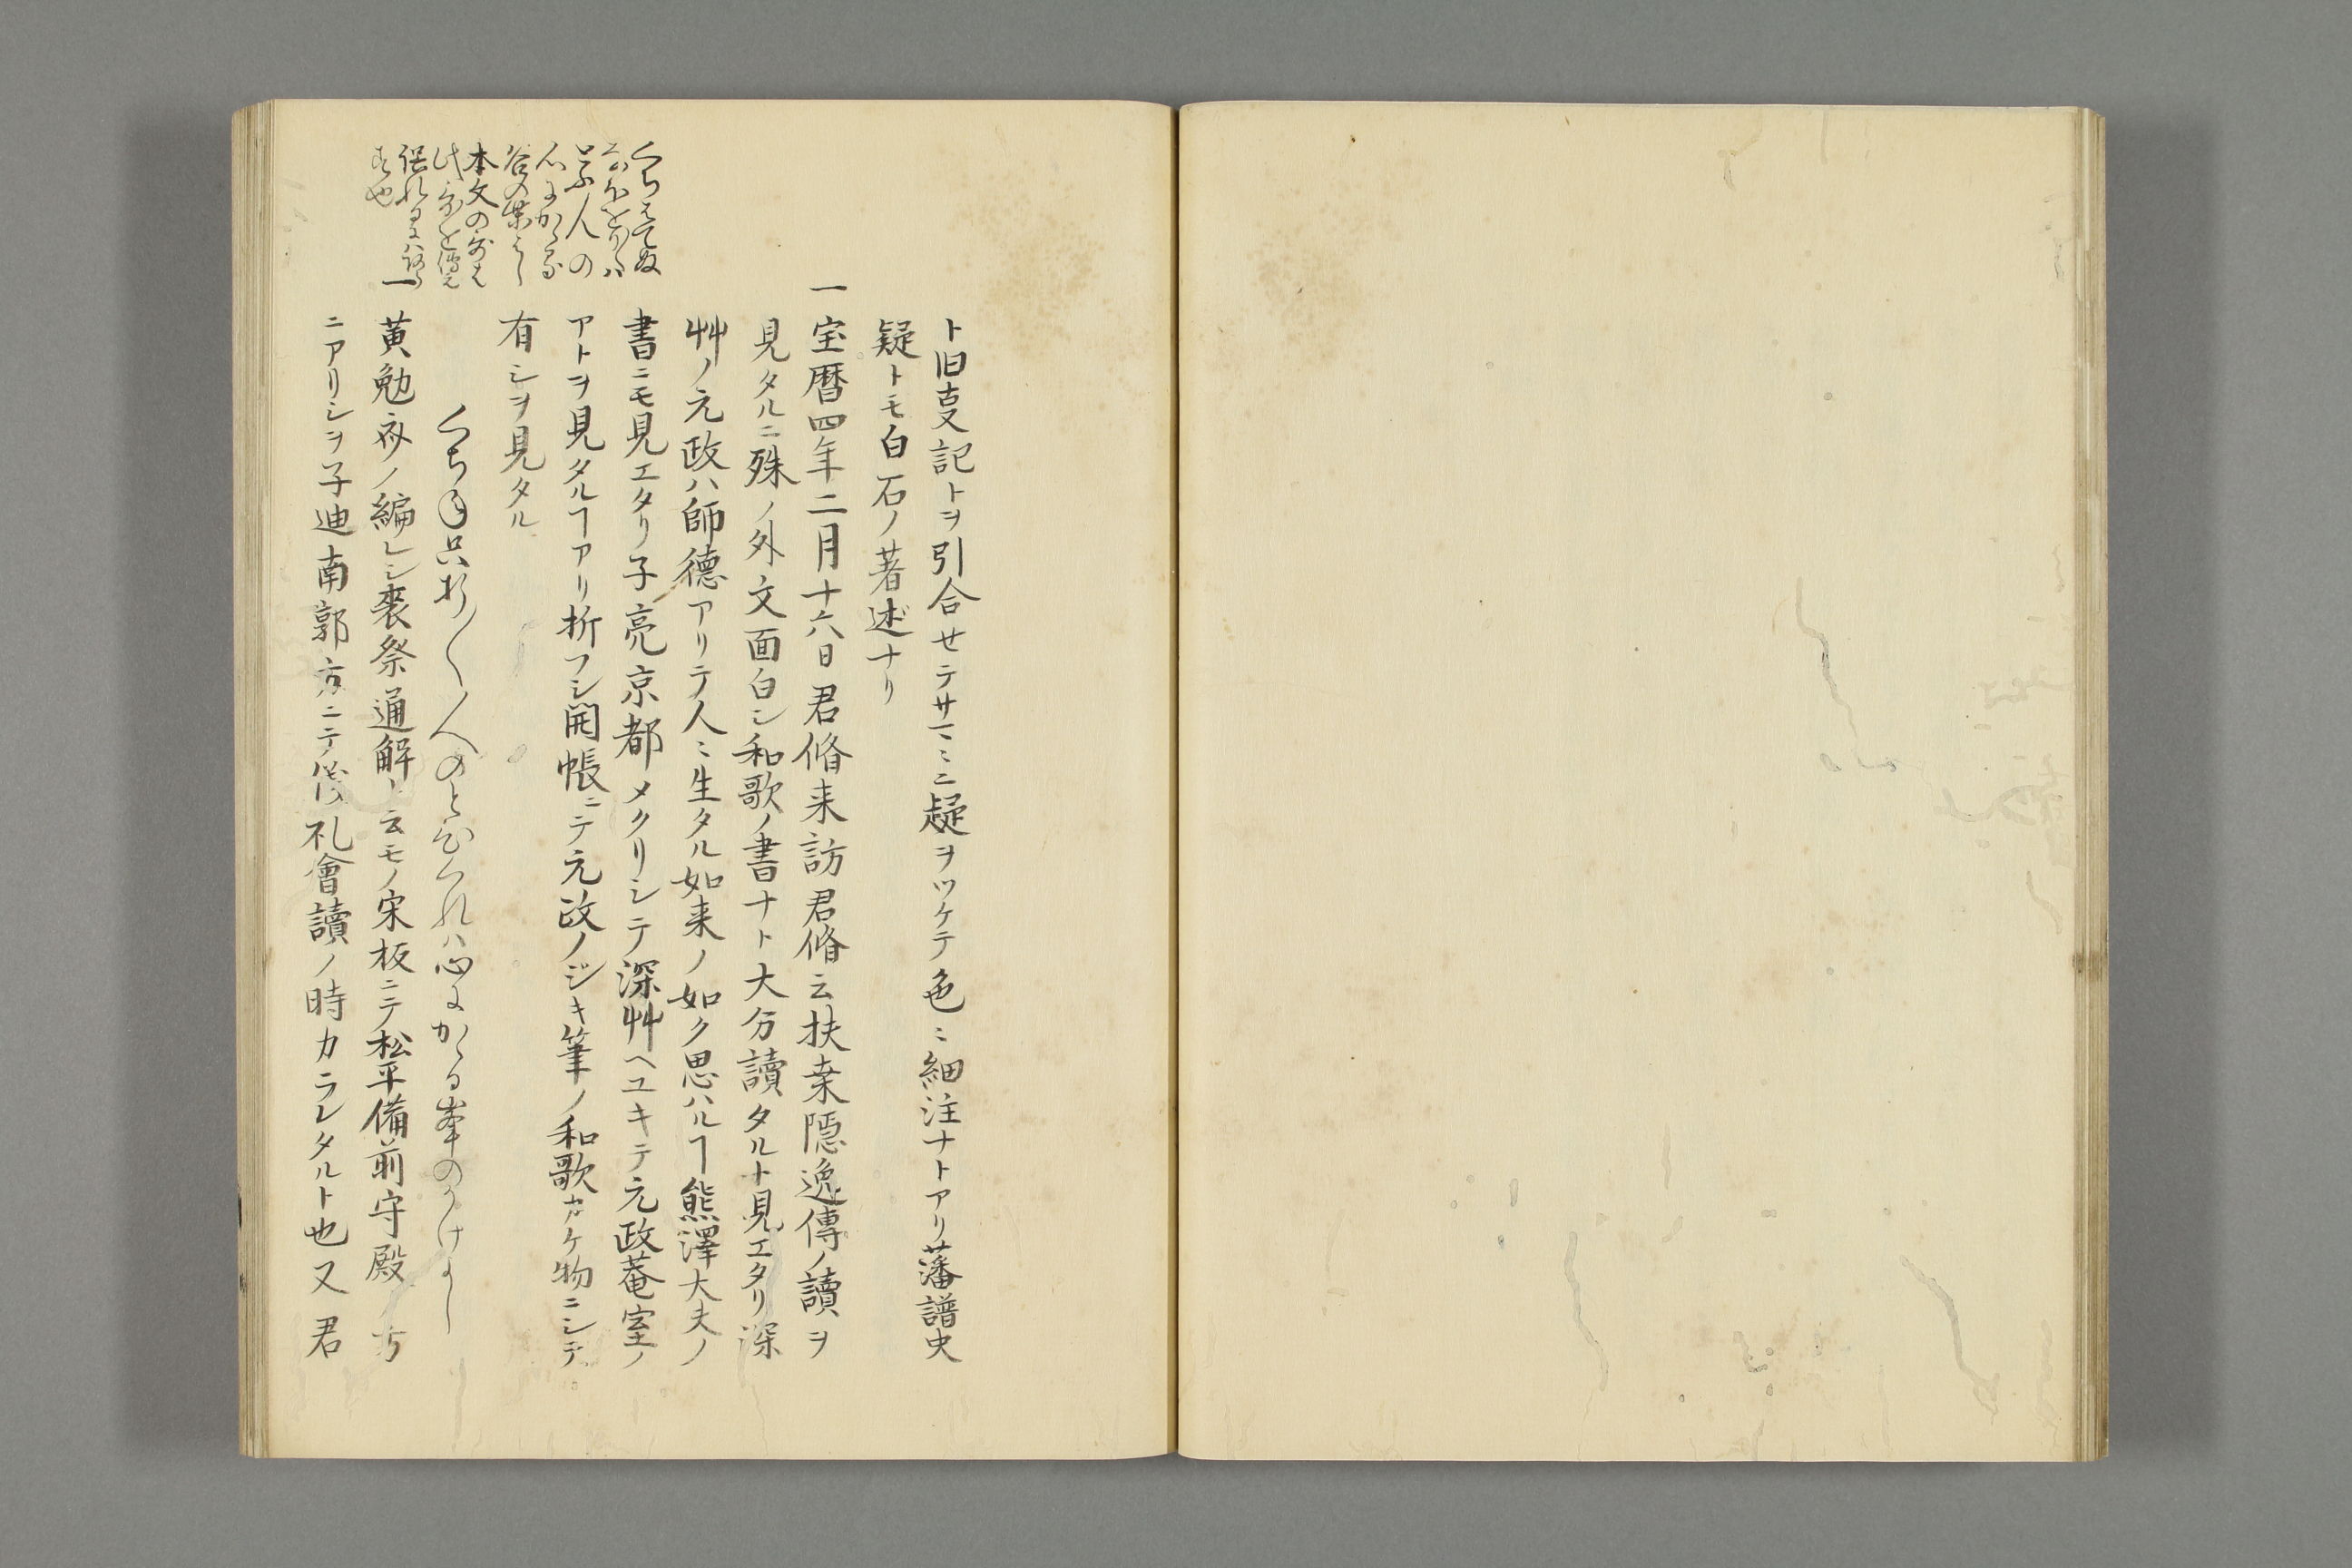 ト旧叓記トヲ引合セテサマ〻ニ疑ヲツケテ色〻細注ナトアリ藩譜史
疑トモ白石ノ著述ナリ
一宝暦四年二月十六日君脩来訪君脩云扶桒隠逸傳ノ讀ヲ
見タルニ殊ノ外文面白シ和歌ノ書ナト大分讀タルト見エタリ深
艸ノ元政ハ師德アリテ人〻生タル如来ノ如ク思ハルヿ熊澤大夫ノ
書ニモ見エタリ子亮京都メクリシテ深艸ヘユキテ元政菴室ノ
アトヲ見タルヿアリ折フシ開帳ニテ元政ノジキ筆ノ和歌カケ物ニシテ
有シヲ見タル
人のとひくれハ心にかゝる峯のかけはし
黄勉斎ノ編レシ喪祭通解ト云モノ宋板ニテ松平備前守殿ノ方
ニアリシヲ子迪南郭方ニテ儀礼會讀ノ時カラレタルト也又君
くちはてぬ
とふ人の
心にかゝる
谷の柴はし
本文の哥は
也